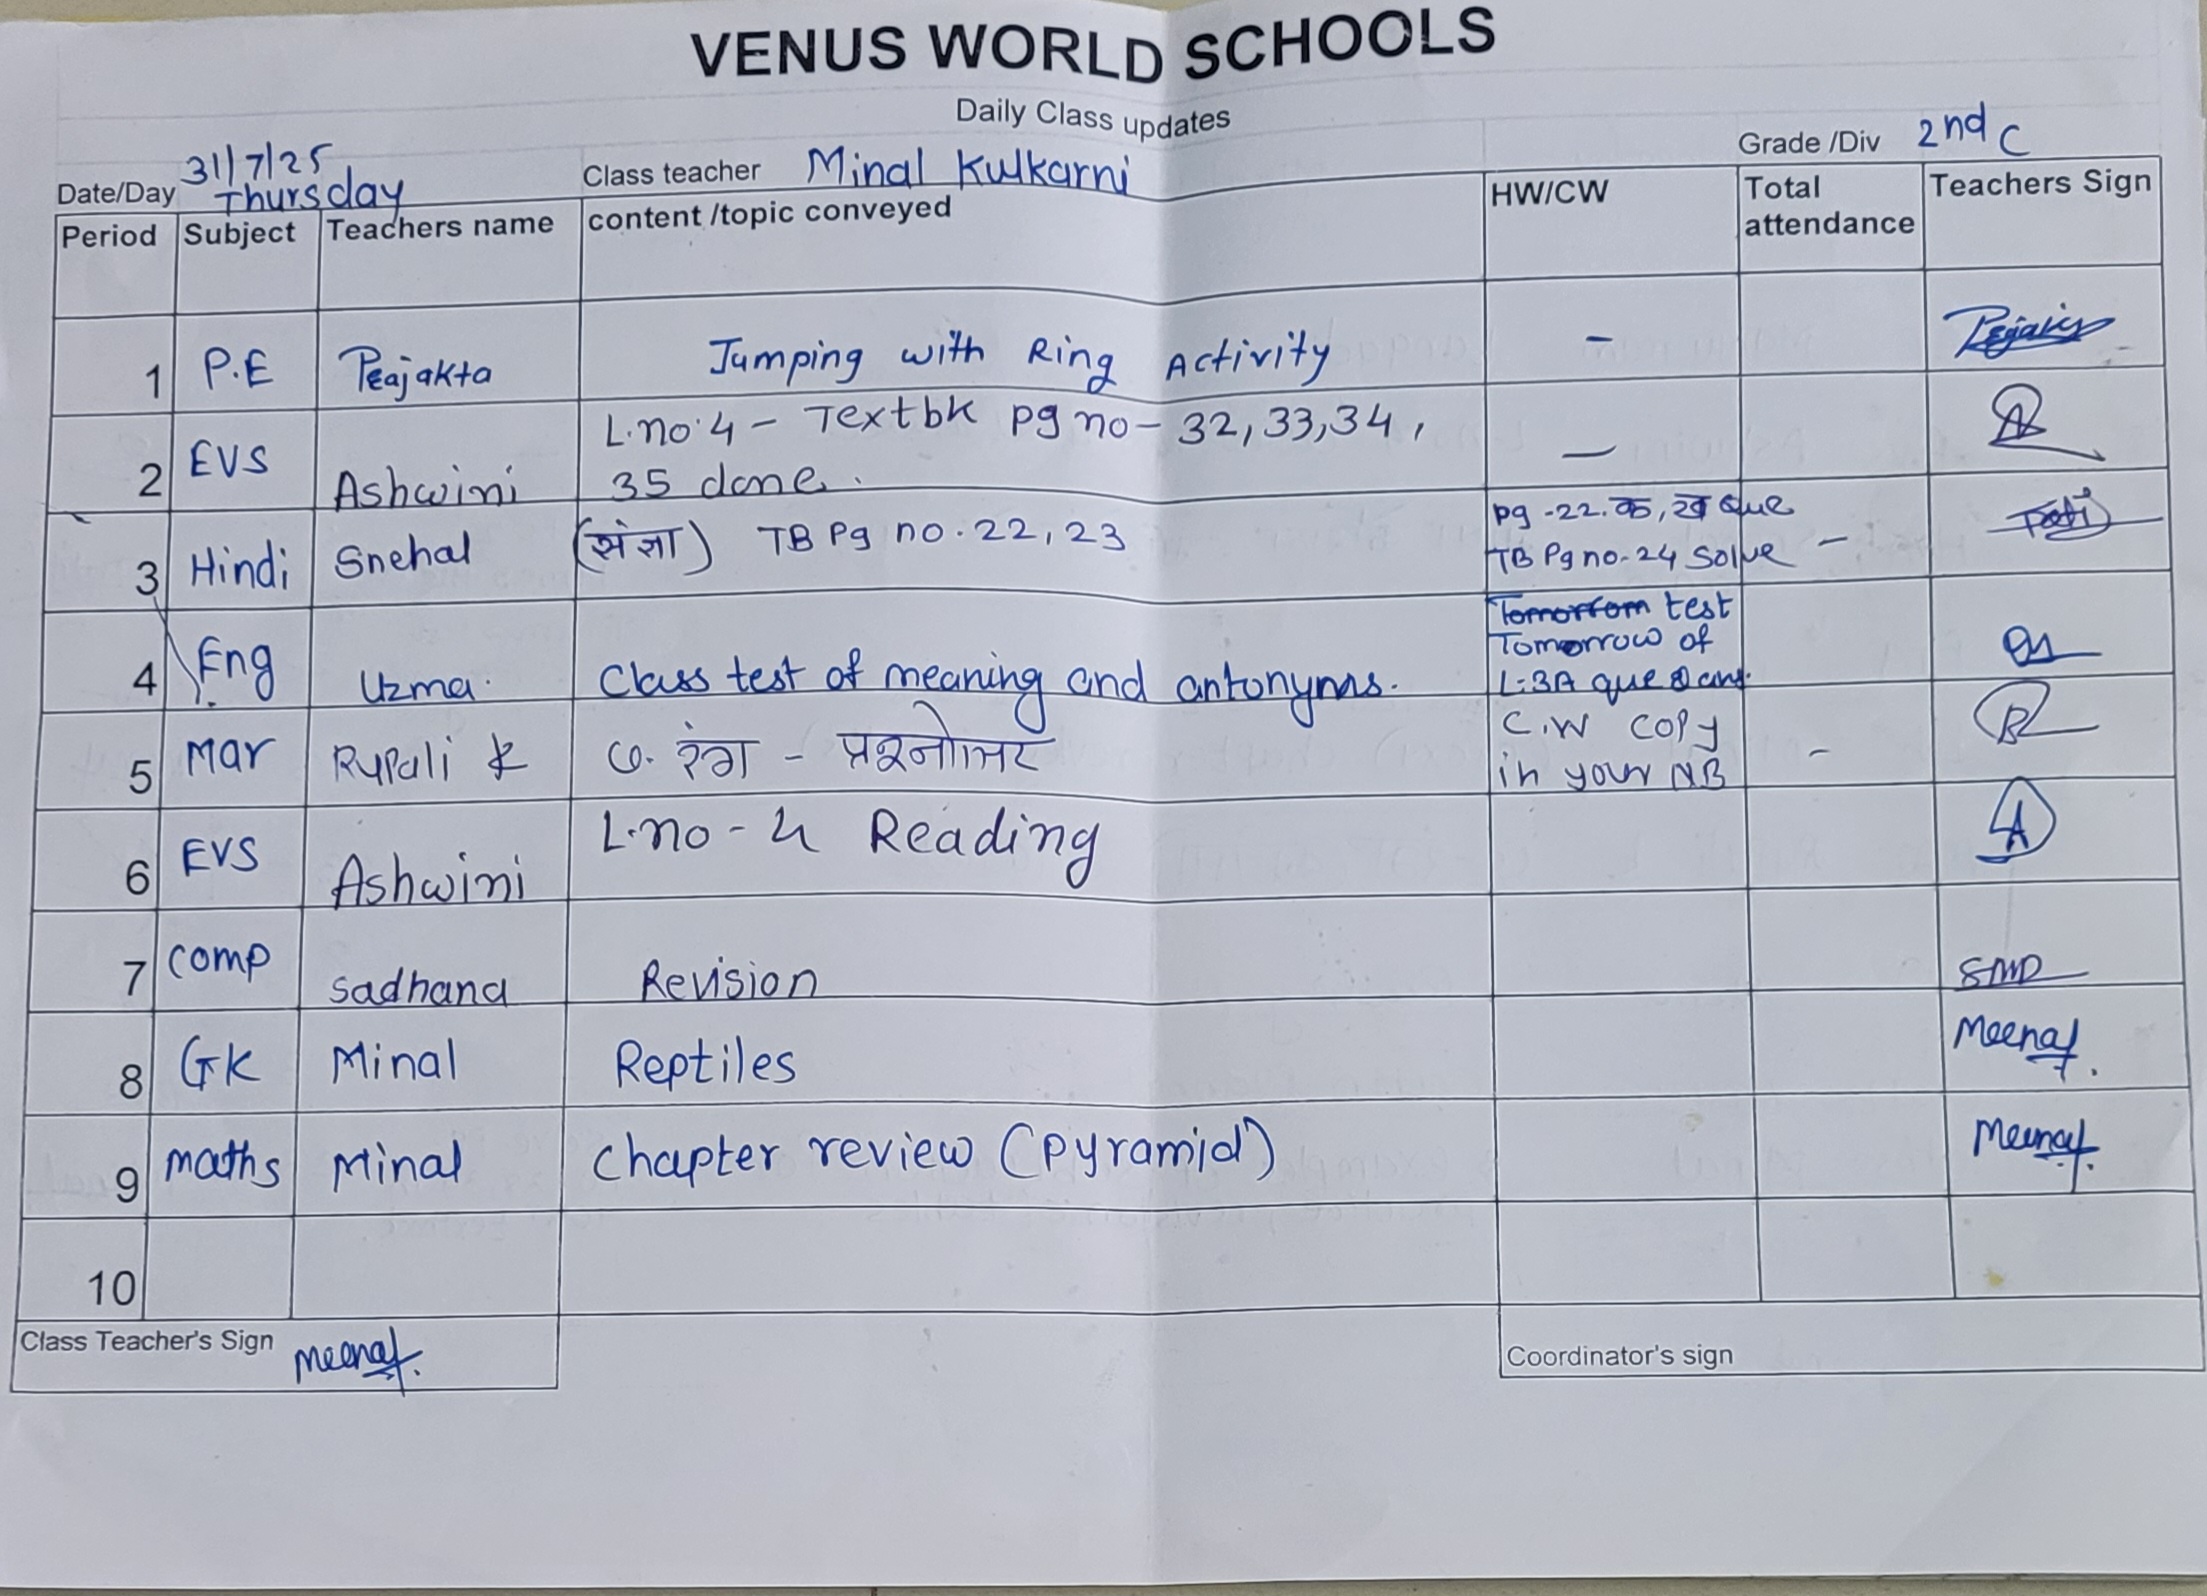 VENUS WORLD SCHOOLS
Daily Class updates
Date/Day 31/7/25 Thursday Class teacher Minal Kulkarni Grade /Div 2nd C
Period Subject Teachers name content /topic conveyed HW/CW Total attendance Teachers Sign
1 P.E Prajakta Jumping with Ring Activity -
2 EVS Ashwini L.no.4 - Textbk pg no- 32,33,34,
35 done.
—
3 Hindi Snehal (संज्ञा) TB Pg no. 22, 23 pg -22. क, ख que
TB Pg no. 24 Solve -
4 Eng Uzma. Class test of meaning and antonyms. test
Tomorrow of
L:3A que & ans.
5 Mar Rupali K ७. रंग - प्रश्नोत्तर C.W copy
in your NB -
6 EVS Ashwini L.no - 4 Reading
7 comp sadhana Revision SMD
8 GK Minal Reptiles Meenal.
9 maths Minal chapter review (pyramid) Meenal.
10
Class Teacher's Sign Meenal.
Coordinator's sign